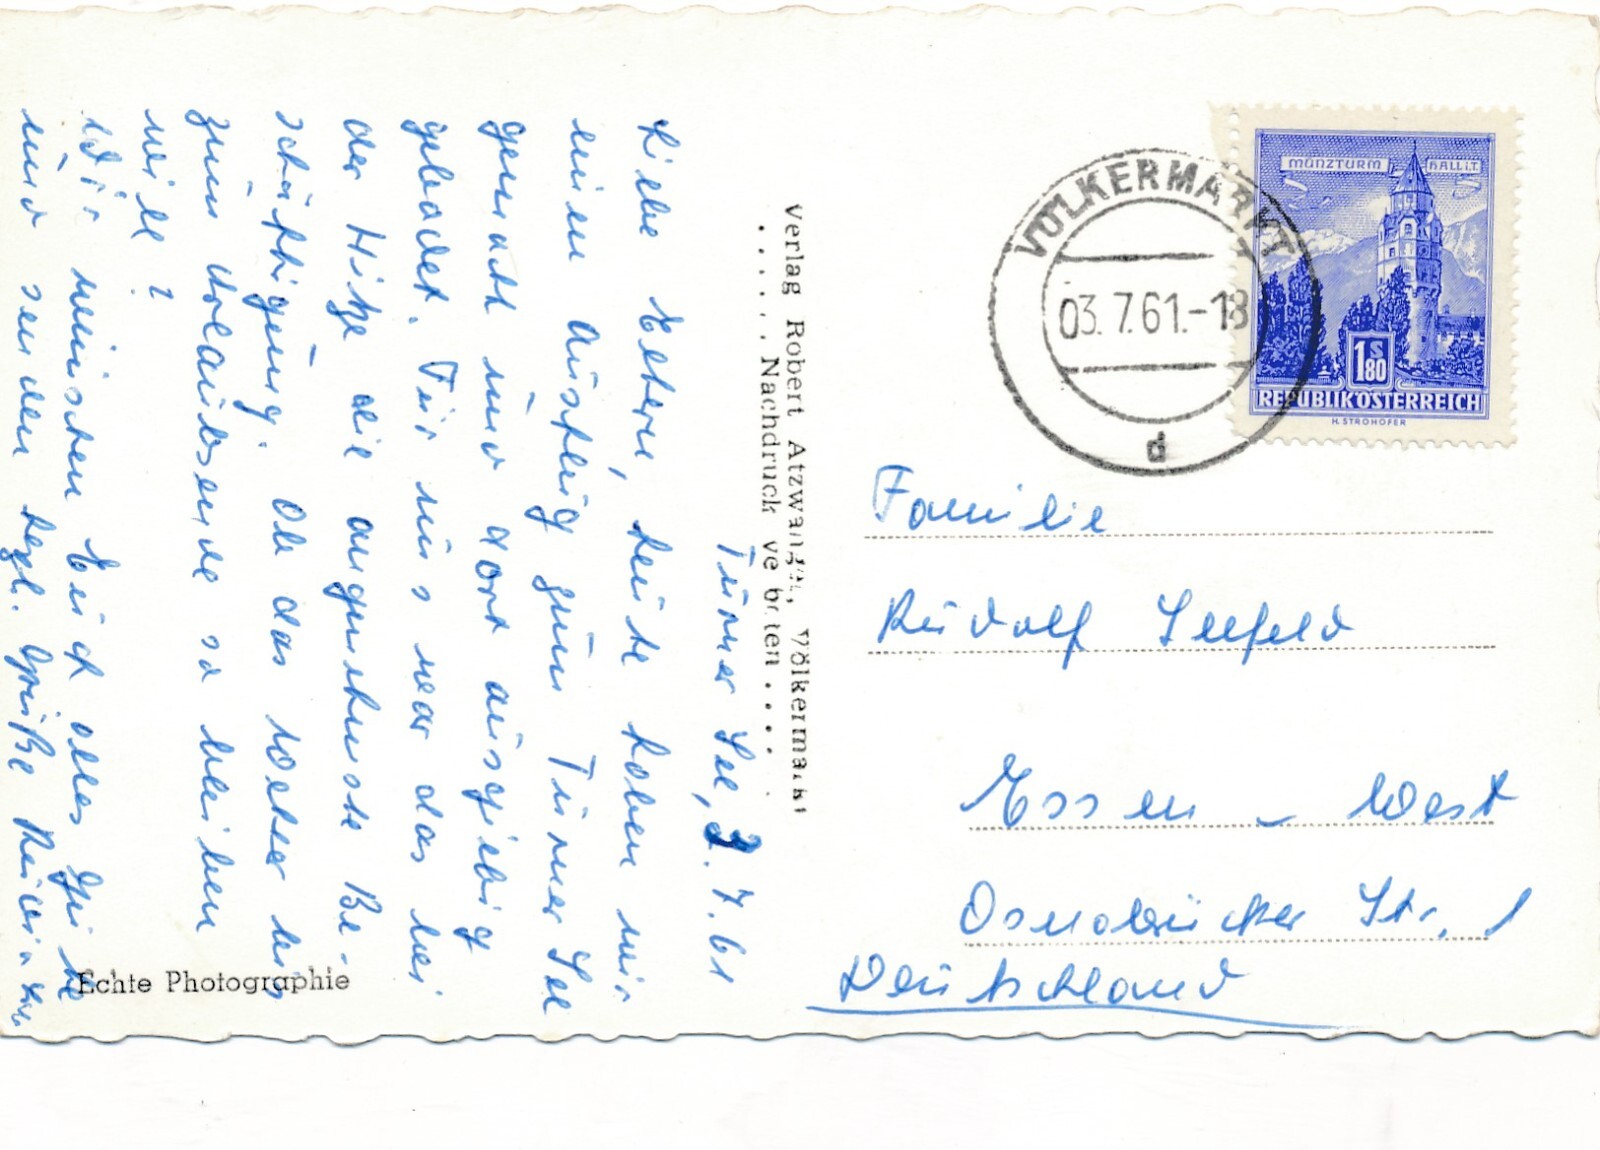 Turner See, 3. 7. 61
Liebe Eltern, heute haben wir
einen Ausflug zum Turner See
gemacht und dort ausgiebig
gebadet. Für uns war das bei
der Hitze die angenehmste Be-
schäftigung. Ob das Wetter bis
zum Urlaubsende so bleiben
wird?
Wir wünschen Euch alles Gute
und senden herzl. Grüße
Verlag Robert Atzwanger, Völkermarkt
. . . . . . Nachdruck verboten . . . . .
Echte Photographie
VÖLKERMARKT
03.7.61.-18
d
MÜNZTURM HALL i.T.
1 S 80
REPUBLIK ÖSTERREICH
H. STROHOFER
Familie
Rudolf Seefeld
Essen - West
Osnabrücker Str. 1
Deutschland